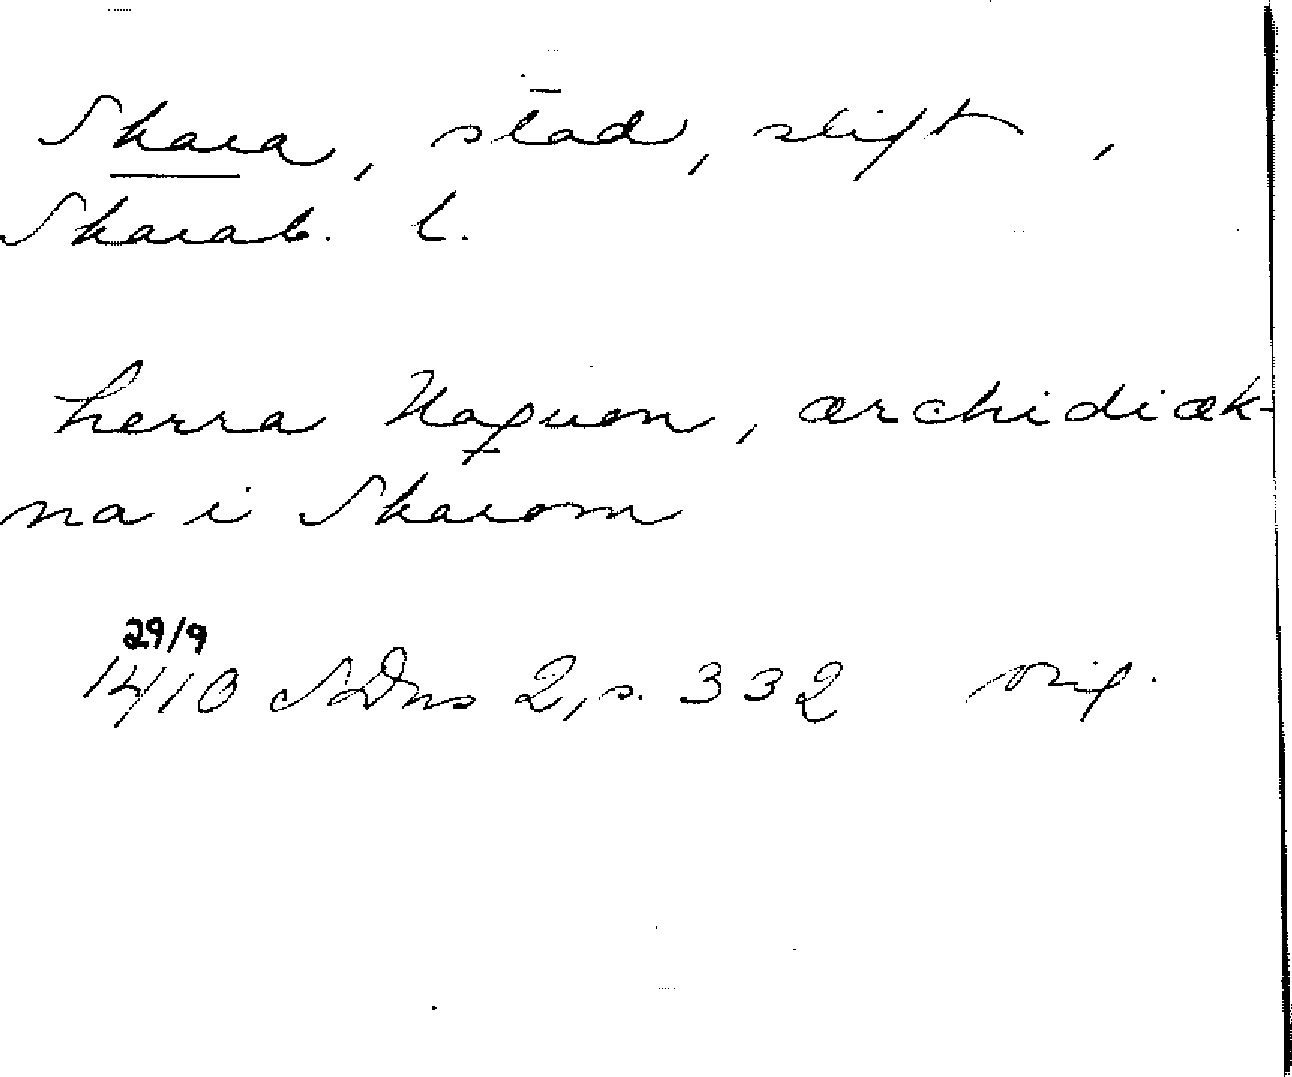 Skara, stad, stift,
Skarab. l.
herra Haquon, ærchidiæk-
na i Skarom
29/9
1410 SDns 2, s. 332 orig.